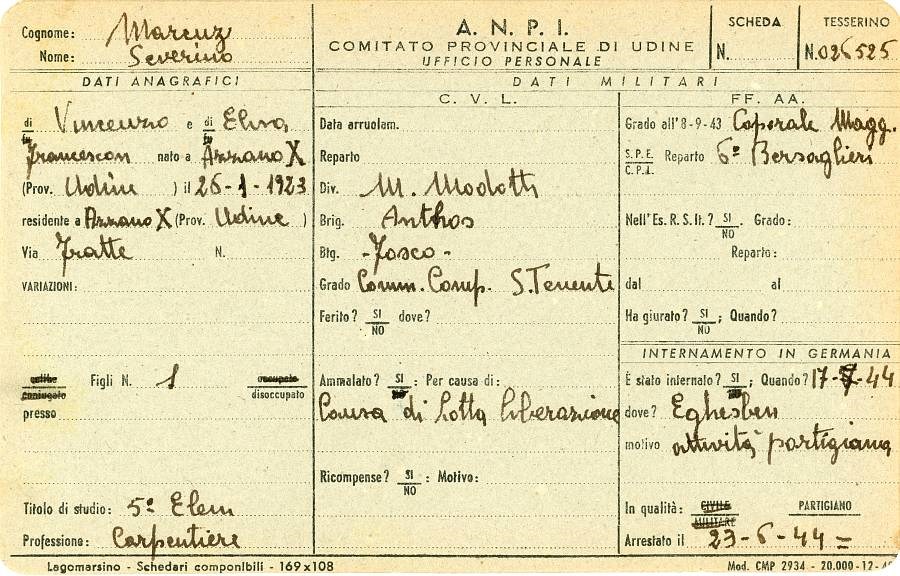 Cognome: Marcuz
Nome: Severino
A. N. P. I.
COMITATO PROVINCIALE DI UDINE
UFFICIO PERSONALE
SCHEDA
N.
TESSERINO
N. 026525
DATI ANAGRAFICI
di Vincenzo e di Elisa
fu fu
Francescon nato a Azzano X
(Prov. Udine ) il 26-1-1923
residente a Azzano X (Prov. Udine )
Via Fratte N.
VARIAZIONI:
celibe Figli N. 1 occupato
coniugato disoccupato
presso
Titolo di studio: 5ª Elem
Professione: Carpentiere
DATI MILITARI
C. V. L.
Data arruolam.
Reparto
Div. M. Modotti
Brig. Anthos
Btg. - Tosco -
Grado Comm. Comp. S. Tenente
Ferito? SI dove?
NO
Ammalato? SI : Per causa di:
NO
Causa di Lotta liberazione
Ricompense? SI : Motivo:
NO
FF. AA.
Grado all'8-9-43 Caporale Magg.
S.P.E. Reparto 6º Bersaglieri
C.P.L.
Nell'Es. R. S. It.? SI Grado:
NO
Reparto:
dal al
Ha giurato? SI ; Quando?
NO
INTERNAMENTO IN GERMANIA
È stato internato? SI ; Quando? 17-7-44
NO
dove? Eghesben
motivo attività partigiana
In qualità: CIVILE PARTIGIANO
MILITARE
Arrestato il 23-6-44=
Lagomarsino - Schedari componibili - 169x108
Mod. CMP 2934 - 20.000-12-4